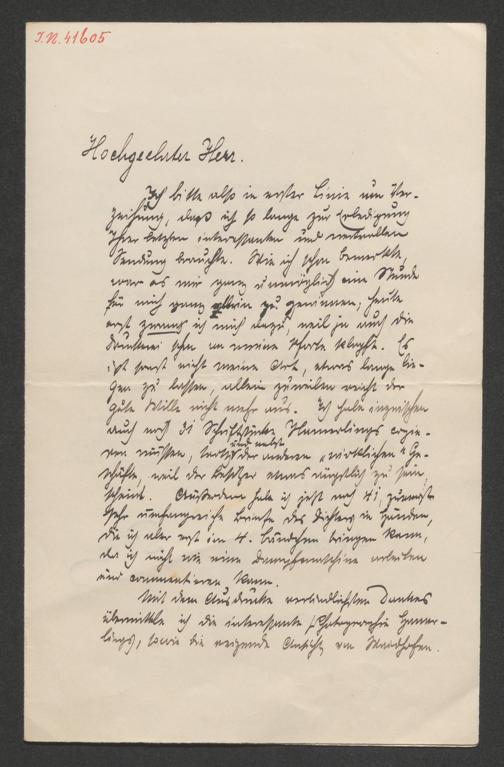 J.N. 41605
Hochgeehrter Herr.
Ich bitte also in erster Linie um Ver-
zeihung, daß ich so lange zur Erledigung
Ihrer letzten interessanten und wertvollen
Sendung brauchte. Wie ich schon bemerkte,
war es mir ganz unmöglich eine Stunde
für mich ganz allein zu gewinnen; heute
erst zwang ich mich dazu, weil ja auch die
Druckerei schon an meine Pforte klopft. Es
ist sonst nicht meine Art, etwas lange lie-
gen zu lassen, allein zuweilen reicht der
gute Wille nicht mehr aus. Ich habe inzwischen
auch noch 31 Schriftstücke Hamerlings
müssen, und nebst der anderen „wirklichen“ Ge-
schäfte, weil der Besitzer etwas ängstlich zu sein
scheint. Außerdem habe ich jetzt noch 41, zumeist
sehr umfangreiche Briefe des Dichters in Händen,
die ich aber erst im 4. Bändchen bringen kann,
da ich nicht wie eine Dampfmaschine arbeiten
und commentieren kann.
Mit dem Ausdrucke verbindlichsten Dankes
übermittle ich die interessante Photographie Hamer-
lings, sowie die reizende Ansicht von Waidhofen.